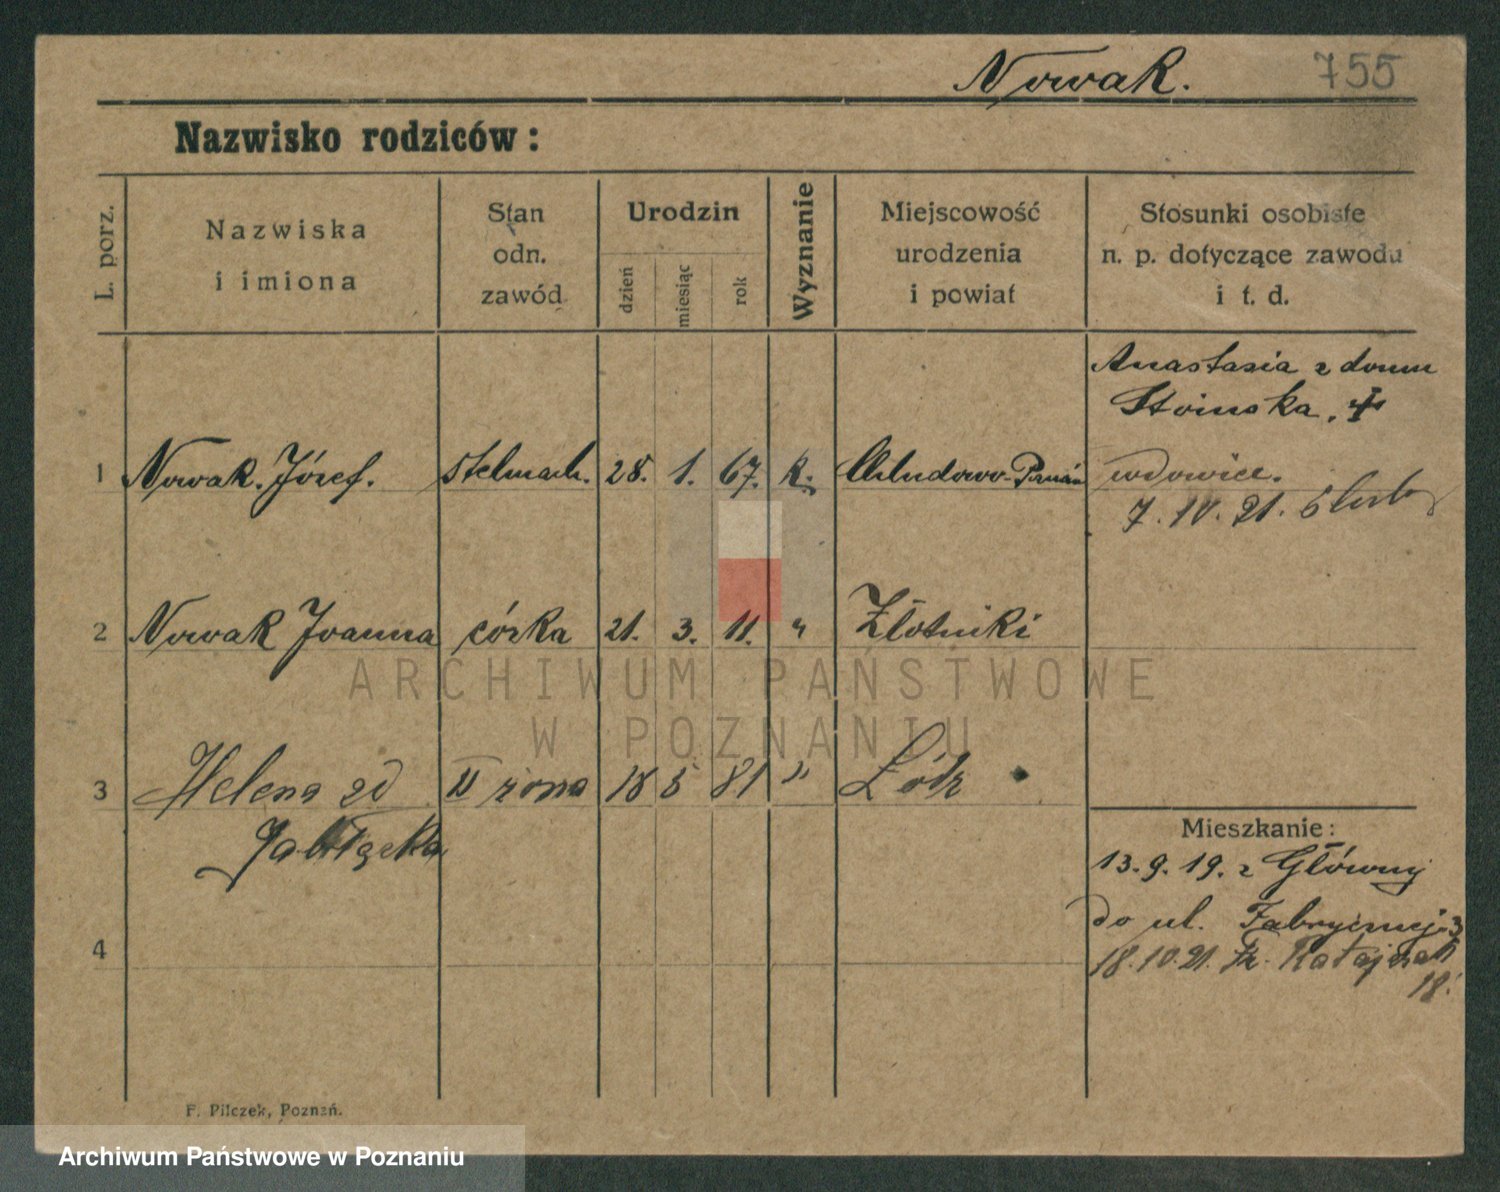 Nowak. 755
Nazwisko rodziców:
L. porz.
Nazwiska
i imiona
Stan
odn.
zawód
Urodzin
dzień
miesiąc
rok
Wyznanie
Miejscowość
urodzenia
i powiat
Stosunki osobiste
n. p. dotyczące zawodu
i t. d.
Anastasia z domu
Stoinska. ‡
1 Nowak. Józef. stelmach. 28. 1. 67. k. Chludowo-Poznań wdowiec.
7. IV. 21.
2 Nowak Joanna córka 21. 3. 11. " Złotniki
3 Helena zd II żona 18 5 81 " Łódz
Mieszkanie:
13. 9. 19. z Główny
do ul. Fabrycznej 3
18. IV. 21. Fr. Ratajczak
18.
4
F. Pilczek, Poznań.
ARCHIWUM PAŃSTWOWE
W POZNANIU
Archiwum Państwowe w Poznaniu